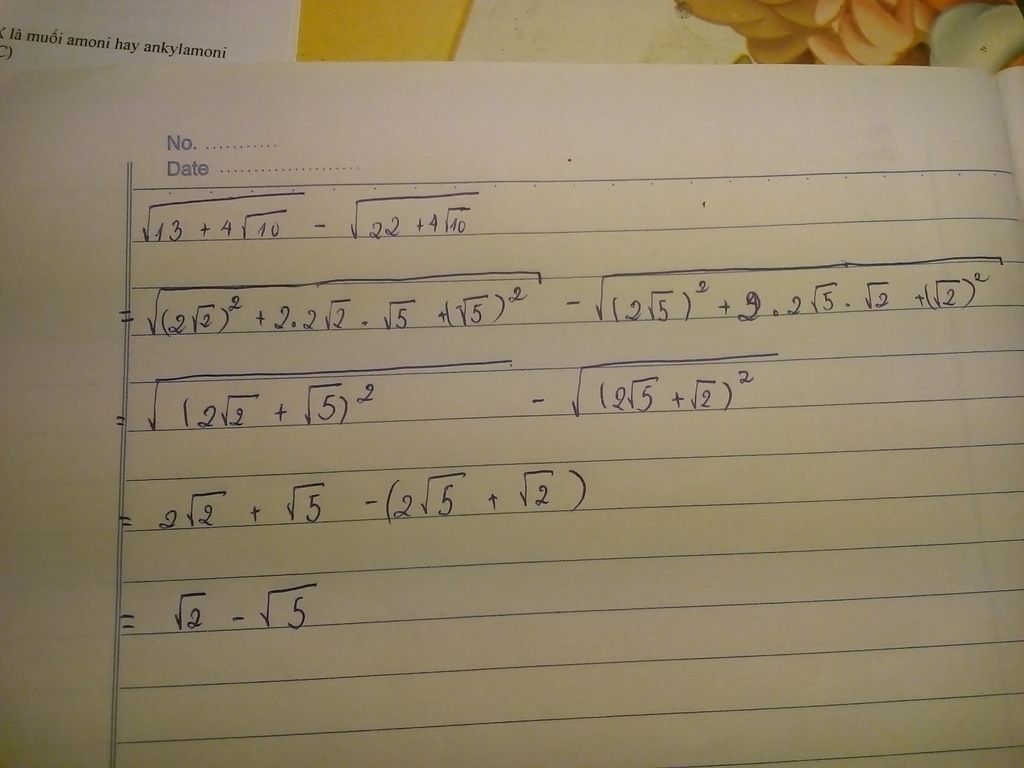 X là muối amoni hay ankylamoni
C)
No. ...........
Date ......................
√(13 + 4√10) - √(22 + 4√10)
= √((2√2)² + 2.2√2 . √5 + (√5)²) - √((2√5)² + 2 . 2√5 . √2 + (√2)²)
= √((2√2 + √5)²) - √((2√5 + √2)²)
= 2√2 + √5 - (2√5 + √2)
= √2 - √5